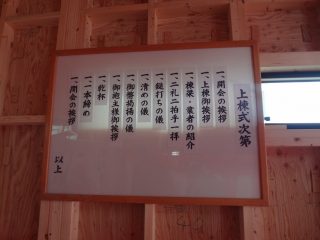 上棟式次第
一、開会の挨拶
一、上棟御挨拶
一、棟梁・業者の紹介
一、二礼二拍手一拝
一、槌打ちの儀
一、清めの儀
一、御幣掲揚の儀
一、御施主様御挨拶
一、乾杯
一、一本締め
一、閉会の挨拶
以上